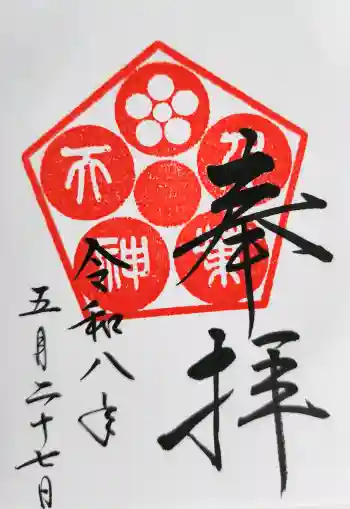 奉拝
令和八年
五月二十七日
天
神